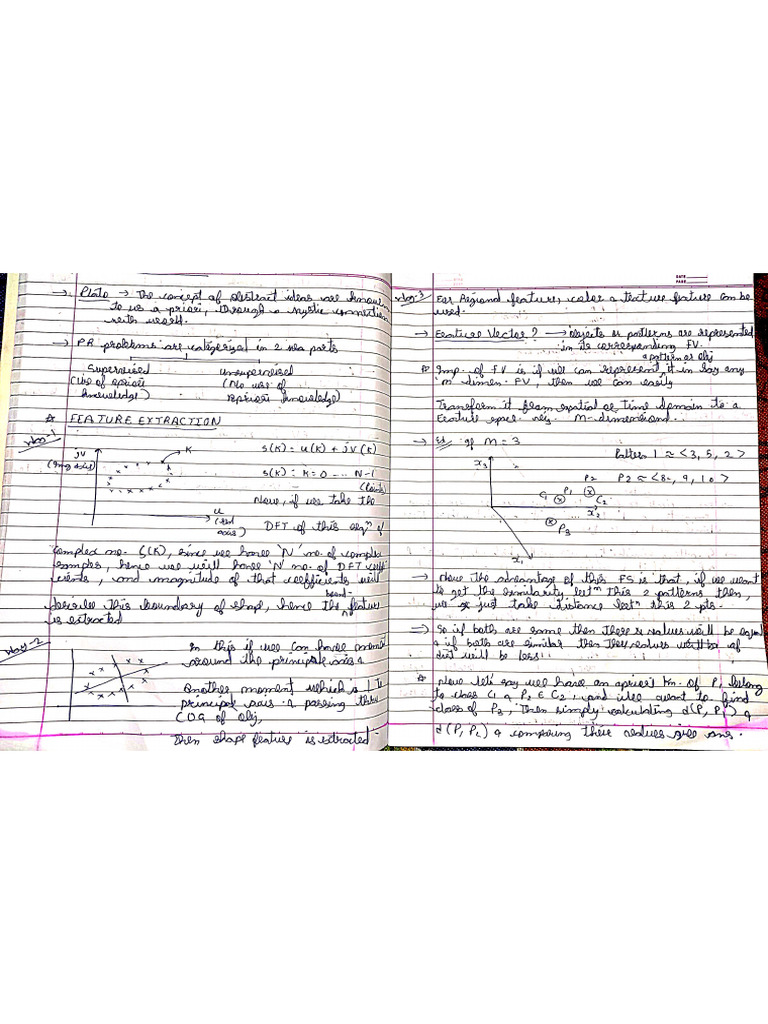 → Plato → The concept of abstract ideas are known
to us a priori, through a mystic connection
with world.
→ PR problems are categorized in 2 parts
Supervised
(Use of apriori
knowledge)
Unsupervised
(No use of
apriori knowledge)
☆ FEATURE EXTRACTION
Way-1
jv
(Img axis)
K
u
(real
axis)
S(K) = u(K) + jV(K)
S(K) : K = 0 ... N-1
(points)
Now, if we take the
DFT of this seqn of
complex no. S(K), since we have 'N' no. of complex
samples, hence we will have 'N' no. of DFT coeff
icients, and magnitude of that coefficients will
describe this boundary of shape, hence the bound- feature
is extracted
Way-2
In this if we can have moment
around the principal axis &
Another moment which is ⊥ to
principal axis & passing thru
COG of obj.
Then shape feature is extracted
DATE
PAGE
Way-3
For Regional feature, color & texture feature can be
used.
→ Feature Vector? → objects or patterns are represented
in its corresponding FV.
a pattern or obj
Imp. of FV is if we can represent it in any
m dimen. FV, then we can easily
Transform it from spatial or time domain to a
feature space M-dimensional.
→ Ex. if M = 3
Pattern 1 ≈ <3, 5, 2>
P2 ≈ <8, 9, 10>
x3
C1
P1
P2
C2
x2
P3
x1
→ Now the advantage of this FS is that, if we want
to get the similarity betn this 2 patterns then,
we just take distance betn this 2 pts.
→ So if both are same then there values will be equal
& if both are similar then there values will be of
dist will be less.
☆ Now let's say we have an apriori kn. of P1 belong
to class C1 & P2 ∈ C2, and we want to find
class of P3, Then simply calculating d(P, P1) &
d(P, P2) & comparing their values give ans.